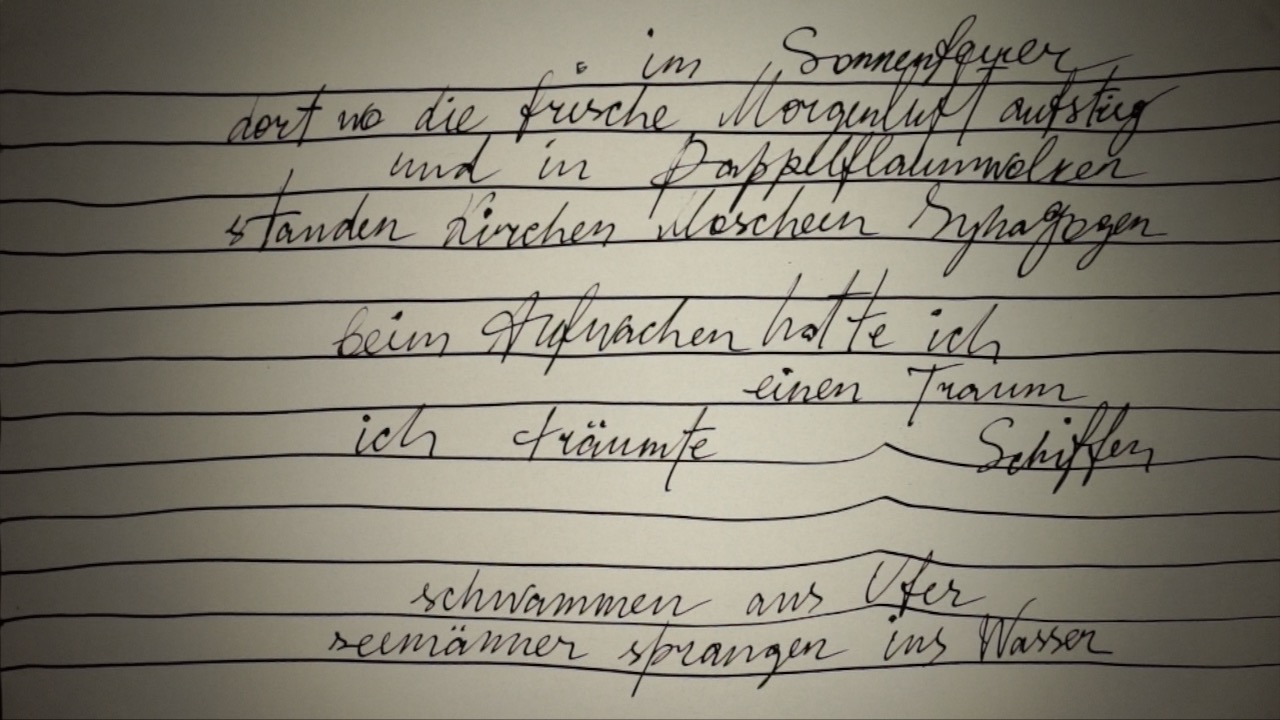 im Sonnenfeuer
dort wo die frische Morgenluft aufstieg
und in Pappelflaumwolken
standen Kirchen Moscheen Synagogen
beim Aufwachen hatte ich
einen Traum
ich träumte Schiffen
schwammen ans Ufer
seemänner sprangen ins Wasser